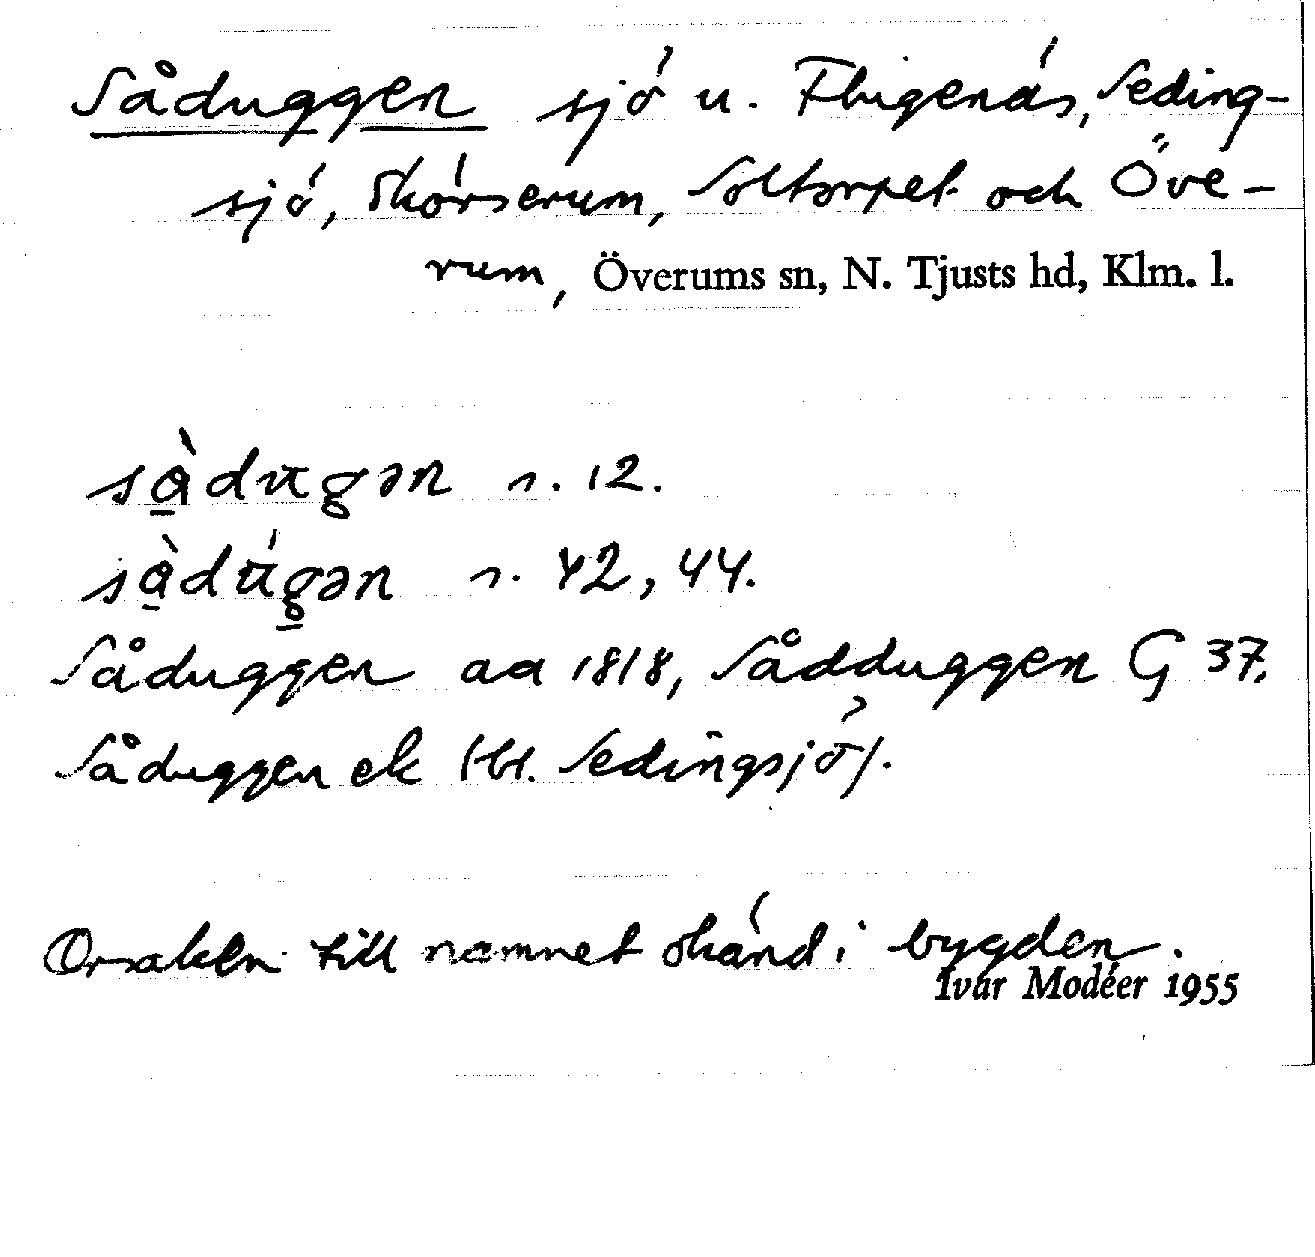 Såduggen sjö u. Flugenäs, Seding-
sjö, Skörserum, Soltorpet och Öve-
rum, Överums sn, N. Tjusts hd, Klm. l.
s. 12.
s. 42, 44.
Såduggen aa 1818, Sådduggen G 37.
Såduggen ek (bl. Sedingsjö).
Orsaken till namnet okänd i bygden.
Ivar Modéer 1955